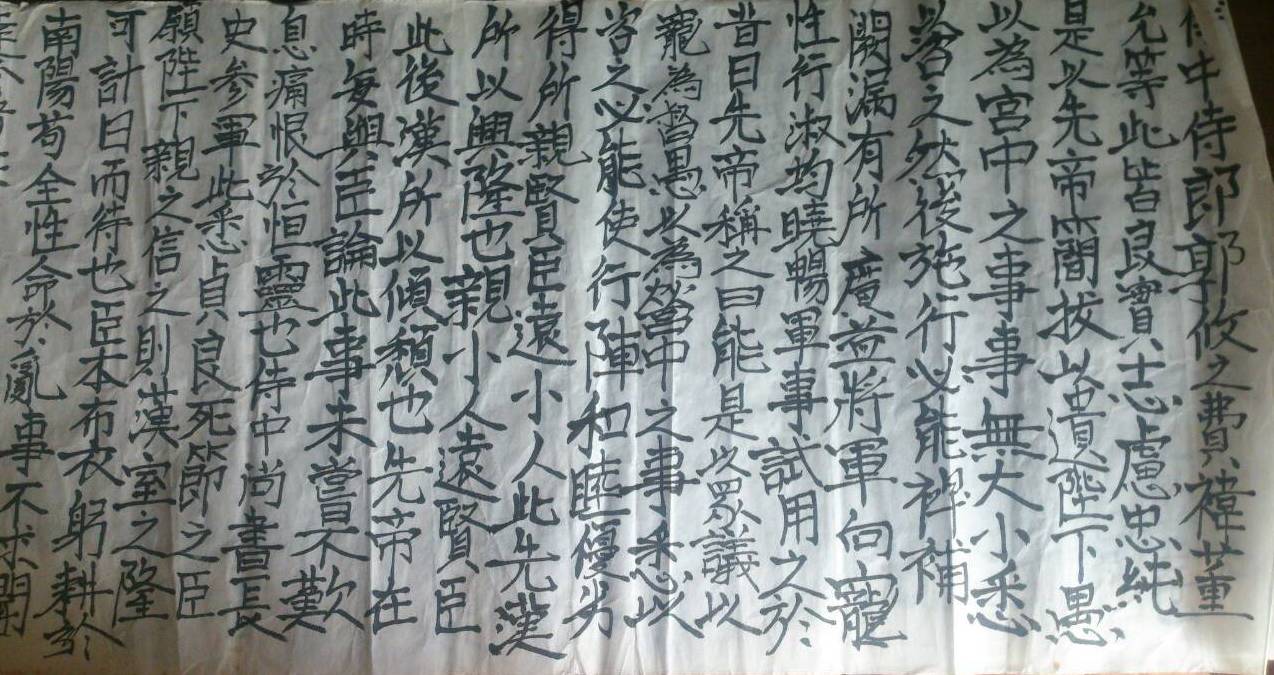 侍中侍郎郭攸之費禕董
允等此皆良實志慮忠純
是以先帝簡拔以遺陛下愚
以為宮中之事事無大小悉
以咨之然後施行必能裨補
闕漏有所廣益將軍向寵
性行淑均曉暢軍事試用之於
昔日先帝稱之曰能是以眾議以
寵為督愚以為營中之事悉以
咨之必能使行陣和睦優劣
得所親賢臣遠小人此先漢
所以興隆也親小人遠賢臣
此後漢所以傾頹也先帝在
時每與臣論此事未嘗不歎
息痛恨於恒靈也侍中尚書長
史參軍此悉貞良死節之臣
願陛下親之信之則漢室之隆
可計日而待也臣本布衣躬耕於
南陽苟全性命於亂事不求聞